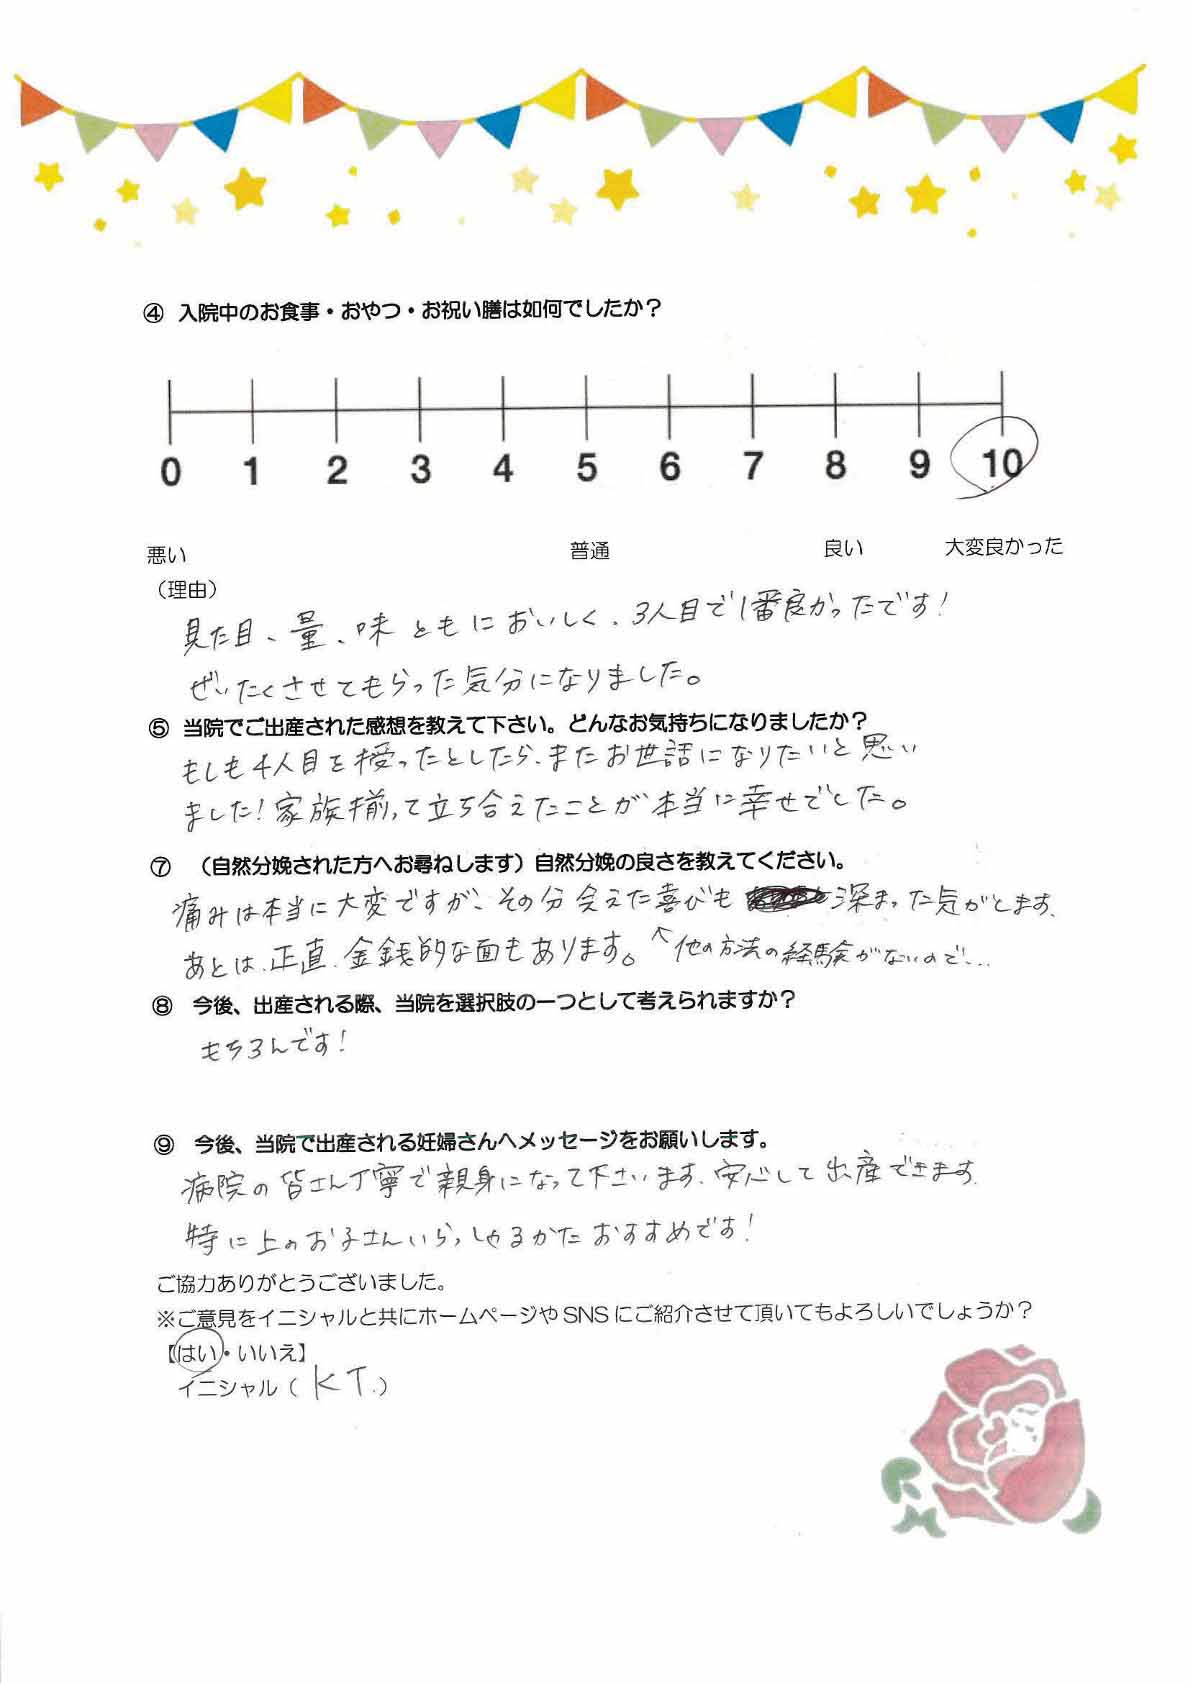 ④ 入院中のお食事・おやつ・お祝い膳は如何でしたか？
0 1 2 3 4 5 6 7 8 9 10
悪い 普通 良い 大変良かった
（理由）
見た目、量、味ともにおいしく、3人目で1番良かったです！
ぜいたくさせてもらった気分になりました。
⑤ 当院でご出産された感想を教えて下さい。どんなお気持ちになりましたか？
もしも4人目を授ったとしたら、またお世話になりたいと思い
ました！家族揃って立ち合えたことが本当に幸せでした。
⑦ （自然分娩された方へお尋ねします）自然分娩の良さを教えてください。
痛みは本当に大変ですが、その分会えた喜びも 深まった気がします。
あとは、正直、金銭的な面もあります。^他の方法の経験がないので…
⑧ 今後、出産される際、当院を選択肢の一つとして考えられますか？
もちろんです！
⑨ 今後、当院で出産される妊婦さんへメッセージをお願いします。
病院の皆さん丁寧で親身になって下さいます。安心して出産できます。
特に上のお子さんいらっしゃるかたおすすめです！
ご協力ありがとうございました。
※ご意見をイニシャルと共にホームページやSNSにご紹介させて頂いてもよろしいでしょうか？
【はい・いいえ】
イニシャル（ K T. ）